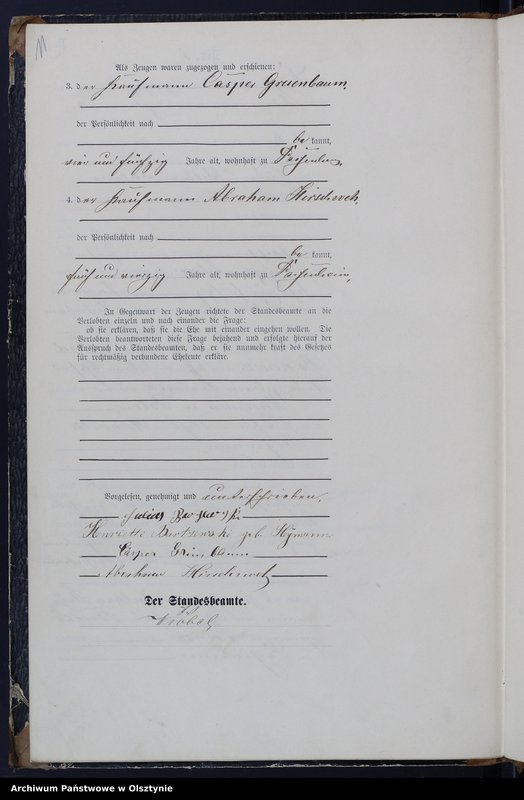 11
Als Zeugen waren zugezogen und erschienen:
3. der Kaufmann Casper Gruenbaum,
der Persönlichkeit nach
be kannt,
vier und fünfzig Jahre alt, wohnhaft zu
4. der Kaufmann Abraham Hirschoveh,
der Persönlichkeit nach
be kannt,
fünf und vierzig Jahre alt, wohnhaft zu
In Gegenwart der Zeugen richtete der Standesbeamte an die
Verlobten einzeln und nach einander die Frage:
ob sie erklären, daß sie die Ehe mit einander eingehen wollen. Die
Verlobten beantworteten diese Frage bejahend und erfolgte hierauf der
Ausspruch des Standesbeamten, daß er sie nunmehr kraft des Gesetzes
für rechtmäßig verbundene Eheleute erkläre.
Vorgelesen, genehmigt und unterschrieben,
Julius
Henriette geb. Hymann
Casper Grünbaum
Abraham
Der Standesbeamte.
Archiwum Państwowe w Olsztynie